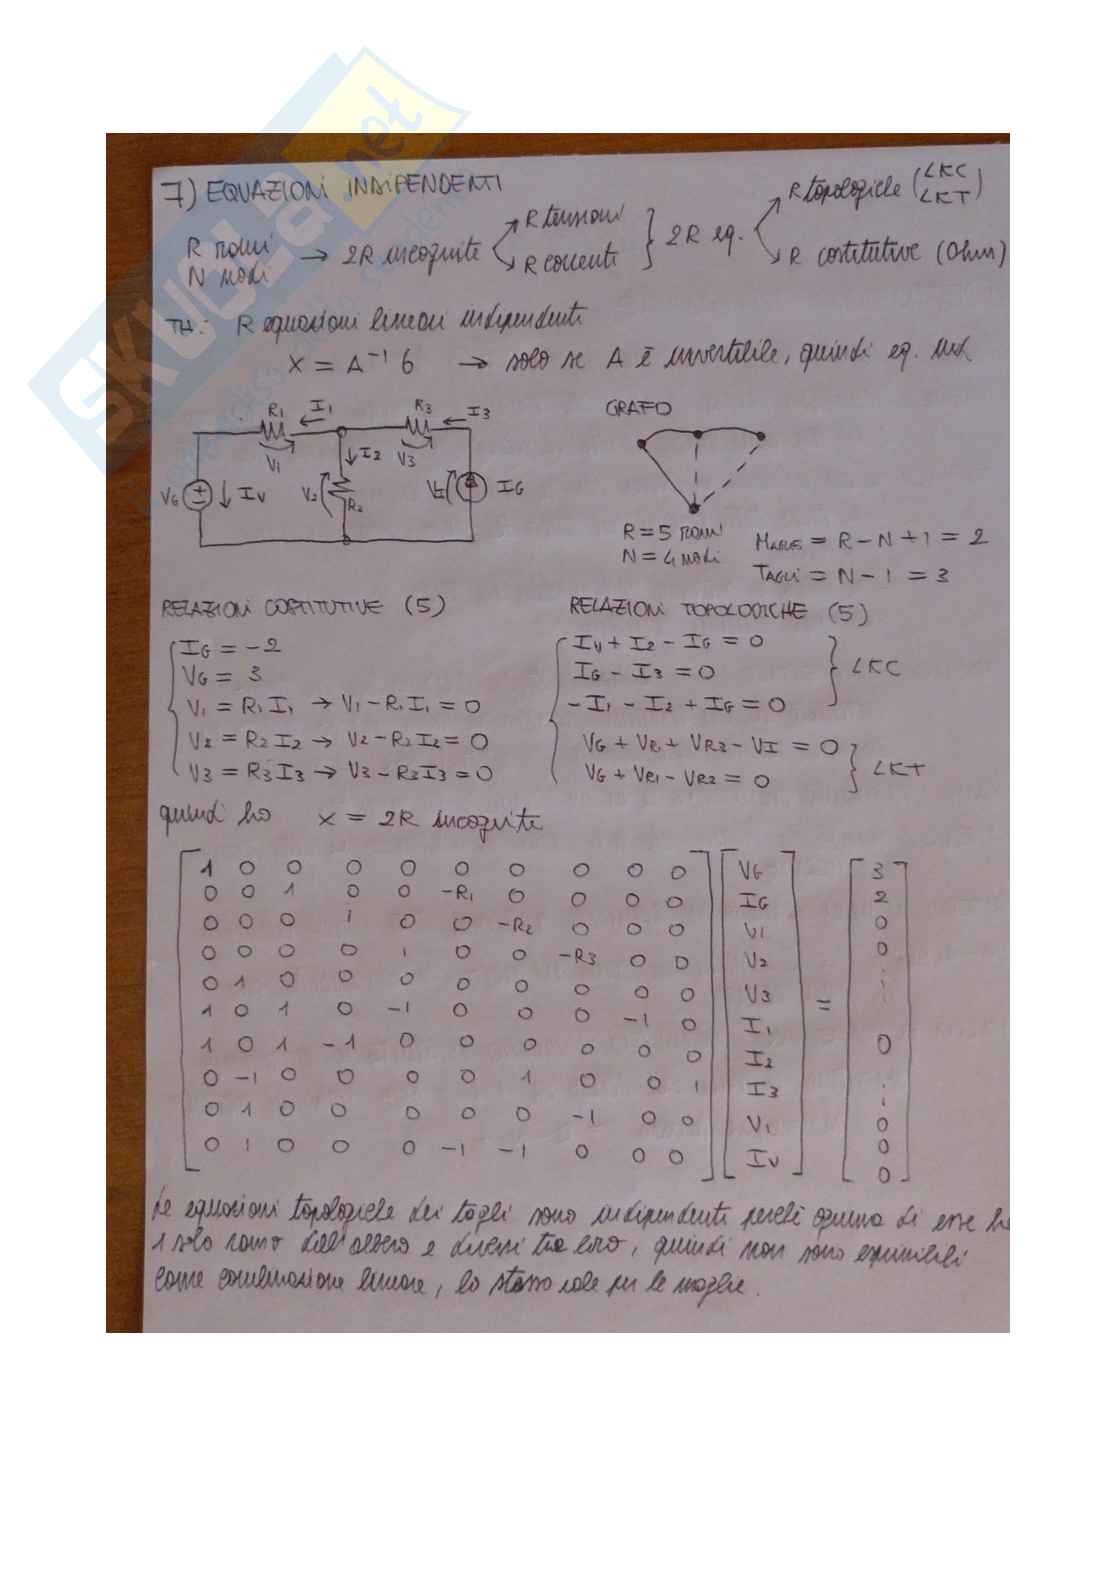 7) EQUAZIONI INDIPENDENTI
R rami
N nodi
→ 2R incognite
R tensioni
R correnti
} 2R eq.
R topologiche (LKC
LKT)
R costitutive (Ohm)
TH: R equazioni lineari indipendenti
X = A⁻¹ b → solo se A è invertibile, quindi eq. ind
R1 I1 R3 I3
V1 I2 V3
VG IV V2 R2 VI IG
GRAFO
R = 5 rami
N = 4 nodi
MAGLIE = R - N + 1 = 2
TAGLI = N - 1 = 3
RELAZIONI COSTITUTIVE (5)
IG = -2
VG = 3
V1 = R1 I1 → V1 - R1 I1 = 0
V2 = R2 I2 → V2 - R2 I2 = 0
V3 = R3 I3 → V3 - R3 I3 = 0
RELAZIONI TOPOLOGICHE (5)
IV + I2 - IG = 0
IG - I3 = 0
- I1 - I2 + IG = 0
} LKC
VG + VR1 + VR3 - VI = 0
VG + VR1 - VR2 = 0
} LKT
quindi ho x = 2R incognite
1 0 0 0 0 0 0 0 0 0 VG 3
0 0 1 0 0 -R1 0 0 0 0 IG 2
0 0 0 1 0 0 -R2 0 0 0 V1 0
0 0 0 0 1 0 0 -R3 0 0 V2 0
0 1 0 0 0 0 0 0 0 0 V3
1 0 1 0 -1 0 0 0 -1 0 I1 =
1 0 1 -1 0 0 0 0 0 0 I2 0
0 -1 0 0 0 0 1 0 0 1 I3
0 1 0 0 0 0 0 -1 0 0 VI 0
0 1 0 0 0 -1 -1 0 0 0 IV 0
0
Le equazioni topologiche dei tagli sono indipendenti perchè ognuna di esse ha
1 solo ramo dell'albero e diversi tra loro, quindi non sono esprimibili
come combinazione lineare, lo stesso vale per le maglie.
SKUOLA.net